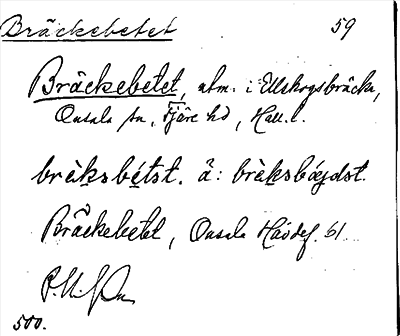 Bräckebetet 59
Bräckebetet, utm. i Ellskogsbräcka,
Onsala sn, Fjäre hd, Hall. l.
bräksbétst. ä: bräksbájdst.
Bräckebetet, Onsala Hävdef. 61
500.